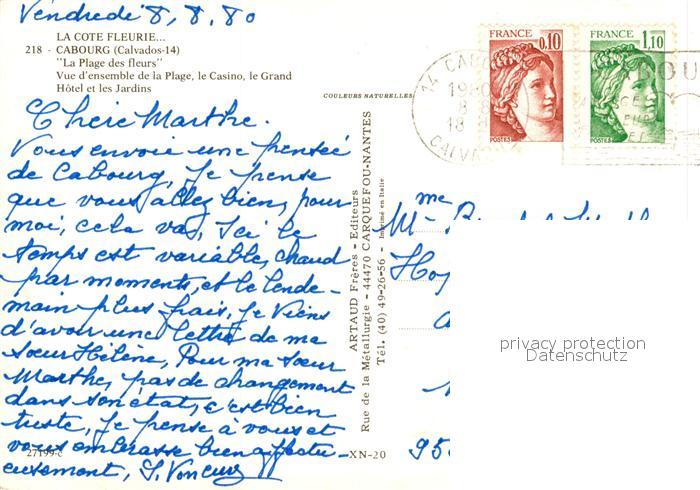 Vendredi 8, 8, 80
LA COTE FLEURIE...
218 - CABOURG (Calvados-14)
"La Plage des fleurs"
Vue d'ensemble de la Plage, le Casino, le Grand
Hôtel et les Jardins
COULEURS NATURELLES
Chère Marthe.
Vous envoie une pensée
de Cabourg, Je pense
que vous allez bien, pour
moi, cela va, Ici le
temps est variable, chaud
par moments, et le lende-
main plus frais, Je Viens
d'avoir une lettre de ma
sœur Hélène, Pour ma sœur
Marthe, pas de changement
dans son état, c'est bien
triste, Je pense à vous et
vous embrasse bien affectu-
eusement,
27199-c
XN-20
ARTAUD Frères - Editeurs
Rue de la Métallurgie - 44470 CARQUEFOU-NANTES
Tél. (40) 49-26-56 - Imprimé en Italie
FRANCE 0,10
POSTES
FRANCE 1,10
POSTES
14 CABOU
1980
8 8
18
CALVA
Mme
95
privacy protection
Datenschutz